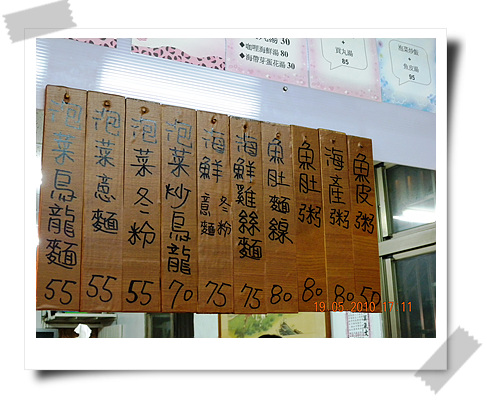 湯 30
◆咖哩海鮮湯 80
◆海帶芽蛋花湯 30
+
貢丸湯
85
泡菜炒飯
+
魚皮湯
95
泡菜烏龍麵 55
泡菜意麵 55
泡菜冬粉 55
泡菜炒烏龍 70
海鮮 冬粉 意麵 75
海鮮雞絲麵 75
魚肚麵線 80
魚肚粥 80
海產粥 80
魚皮粥 50
19.05.2010 17:11